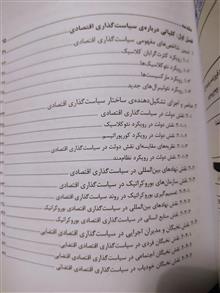 مقدمه
فصل اول: کلیاتی درباره‌ی سیاست‌گذاری اقتصادی
۱ تبیین شاخص‌های مفهومی سیاست‌گذاری اقتصادی
۱-۱ رویکرد کثرت‌گرایان کلاسیک
۱-۲ رویکرد نئوکلاسیک‌ها
رویکرد مارکسیست‌ها
رویکرد نولیبرال‌های جدید
۲ عناصر و اجزای تشکیل‌دهنده‌ی ساختار سیاست‌گذاری اقتصادی
نقش دولت در سیاست‌گذاری اقتصادی
نقش دولت در رویکرد نئوکلاسیک
نقش دولت در رویکرد کورپوراتیسم
نظریه‌های مقایسه‌ای نقش دولت در سیاست‌گذاری اقتصادی
نقش دولت در رویکرد نظام‌مند
نقش نهادهای بین‌المللی در سیاست‌گذاری اقتصادی
نقش سازمان‌های بوروکراتیک در سیاست‌گذاری اقتصادی
تصمیم‌گیری در روند سیاست‌گذاری اقتصادی بوروکراتیک
نقش نهادهای بین‌المللی در سیاست‌گذاری اقتصادی بوروکراتیک
نقش منابع انسانی در سیاست‌گذاری اقتصادی
نقش نخبگان و مدیران اجرایی در سیاست‌گذاری اقتصادی
نقش نخبگان فردی در سیاست‌گذاری اقتصادی اقتضایی
نقش نخبگان اجتماعی در سیاست‌گذاری اقتصادی اقتضایی
نقش نخبگان خودیاب در سیاست‌گذاری اقتصادی اقتضایی